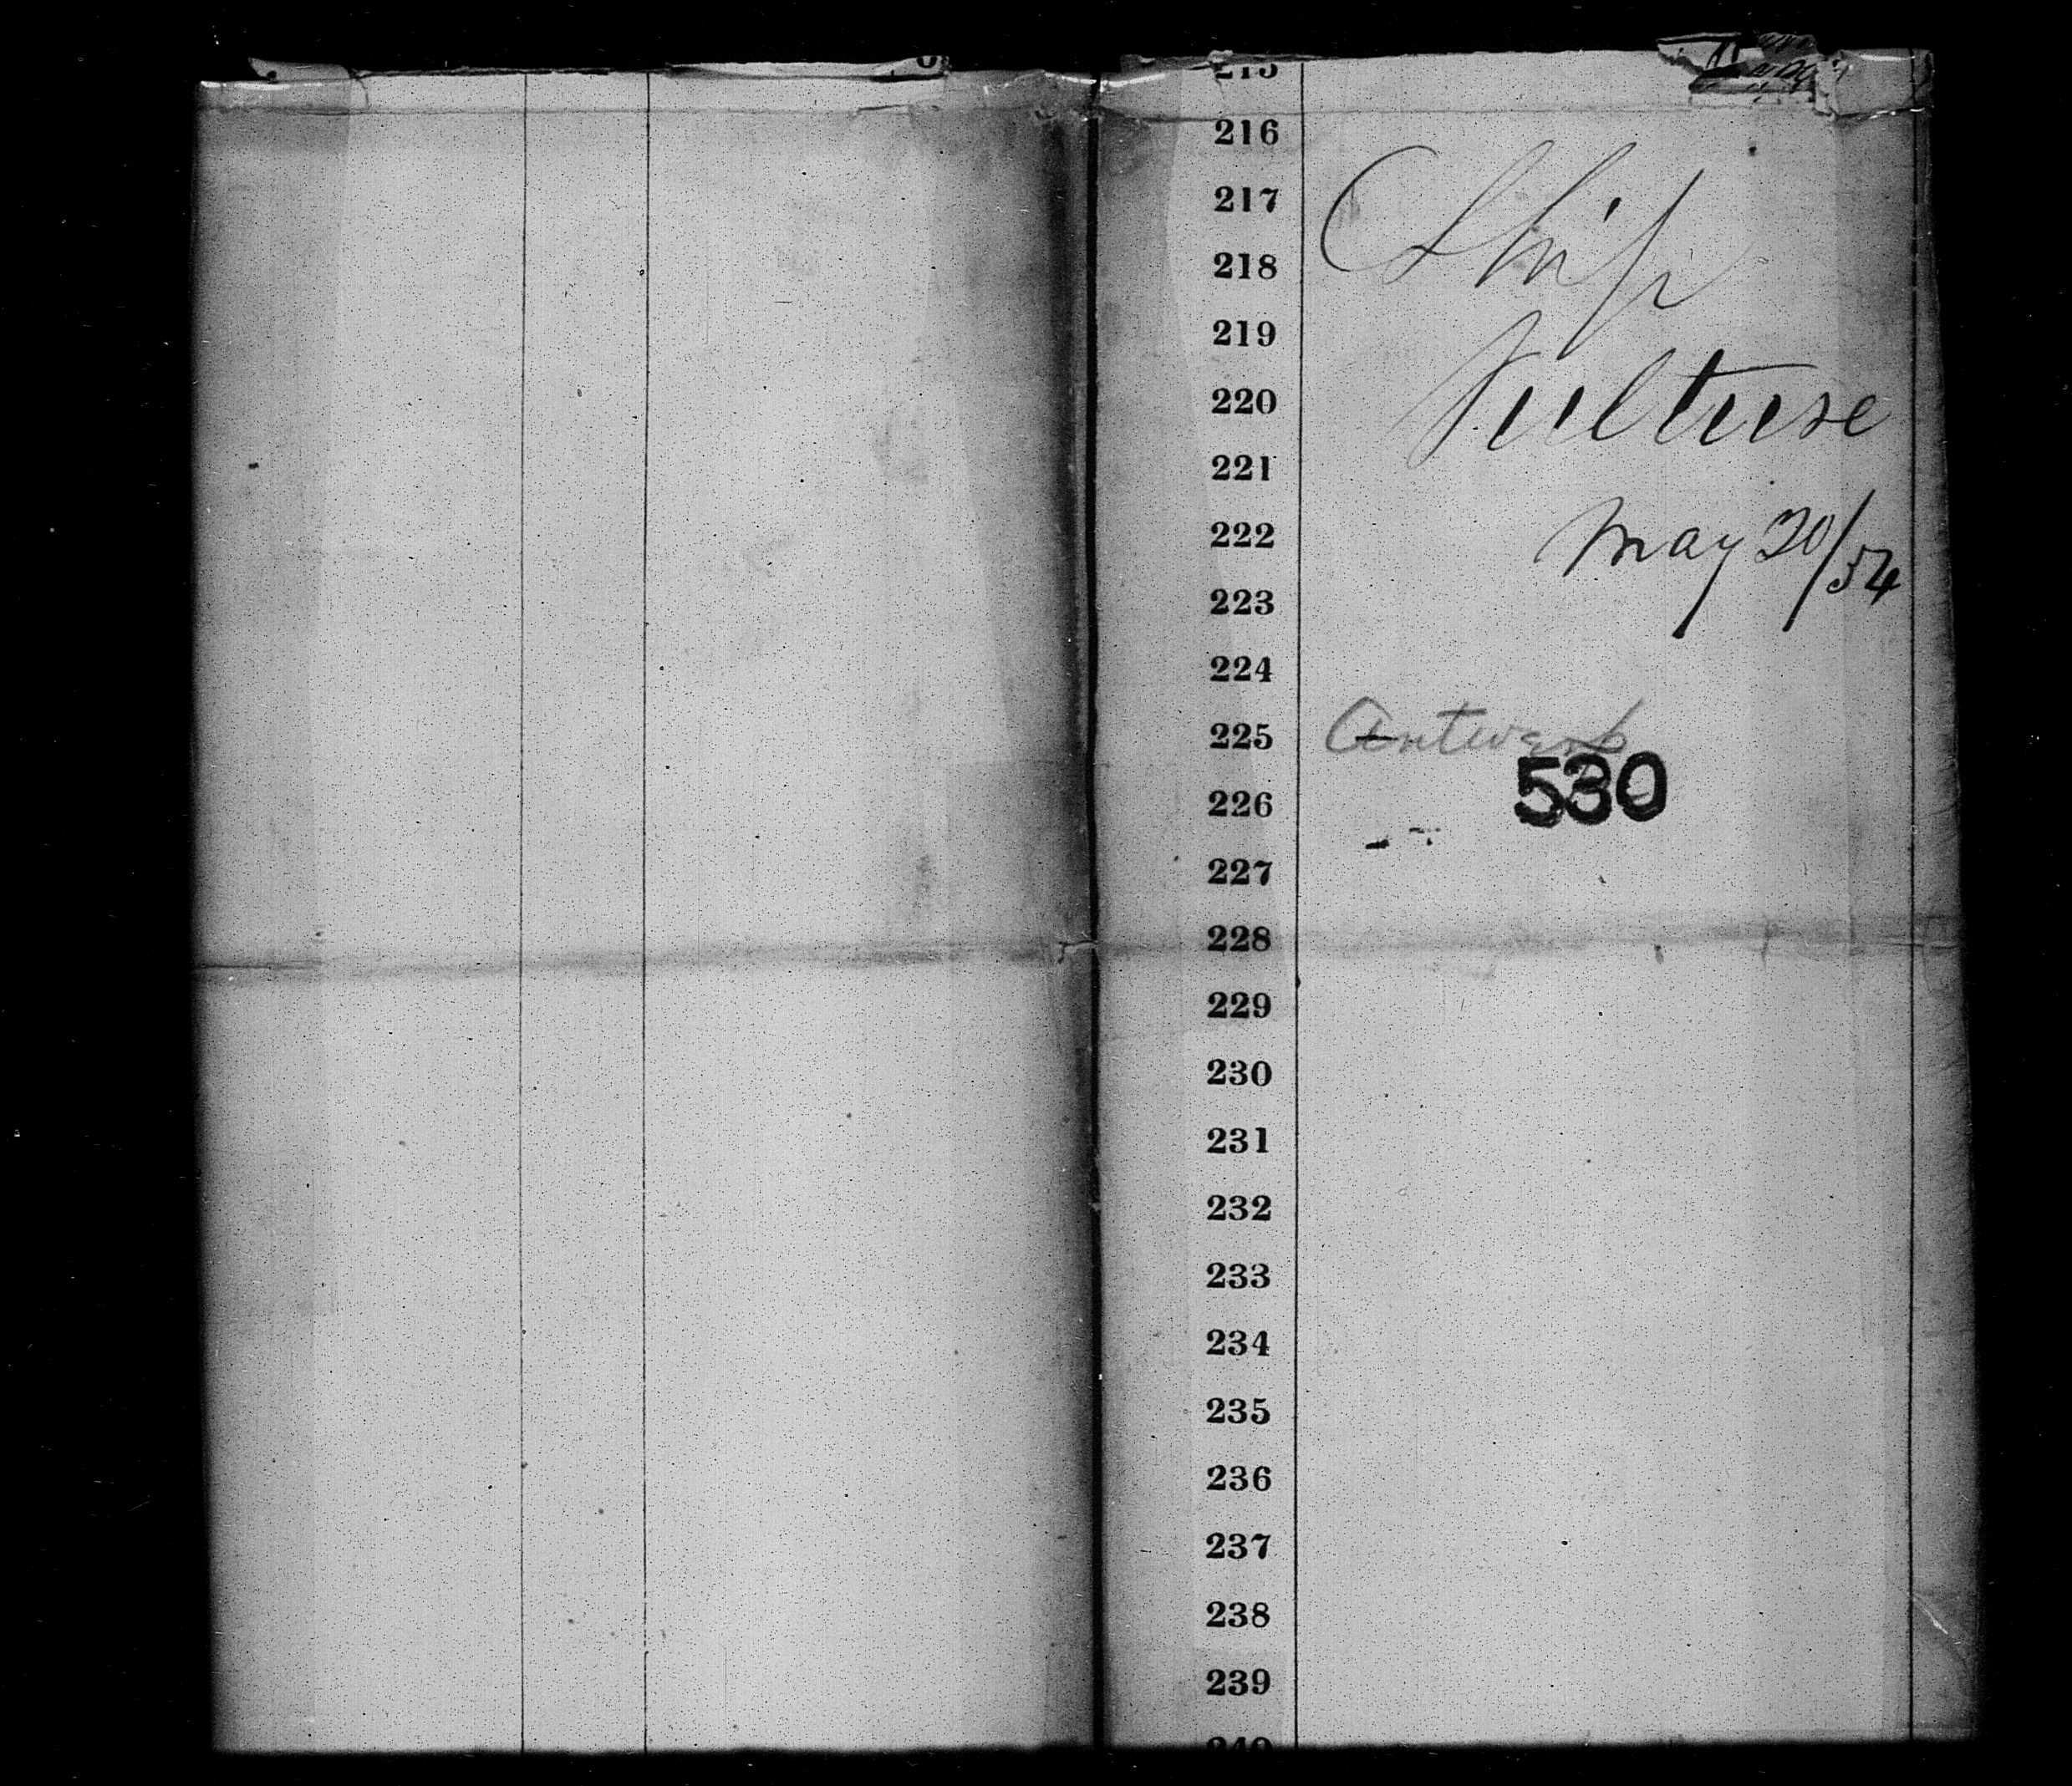 215
216
217
218
219
220
221
222
223
224
225
226
227
228
229
230
231
232
233
234
235
236
237
238
239
240
Ship
Vulture
May 20/54
Antwerp
530